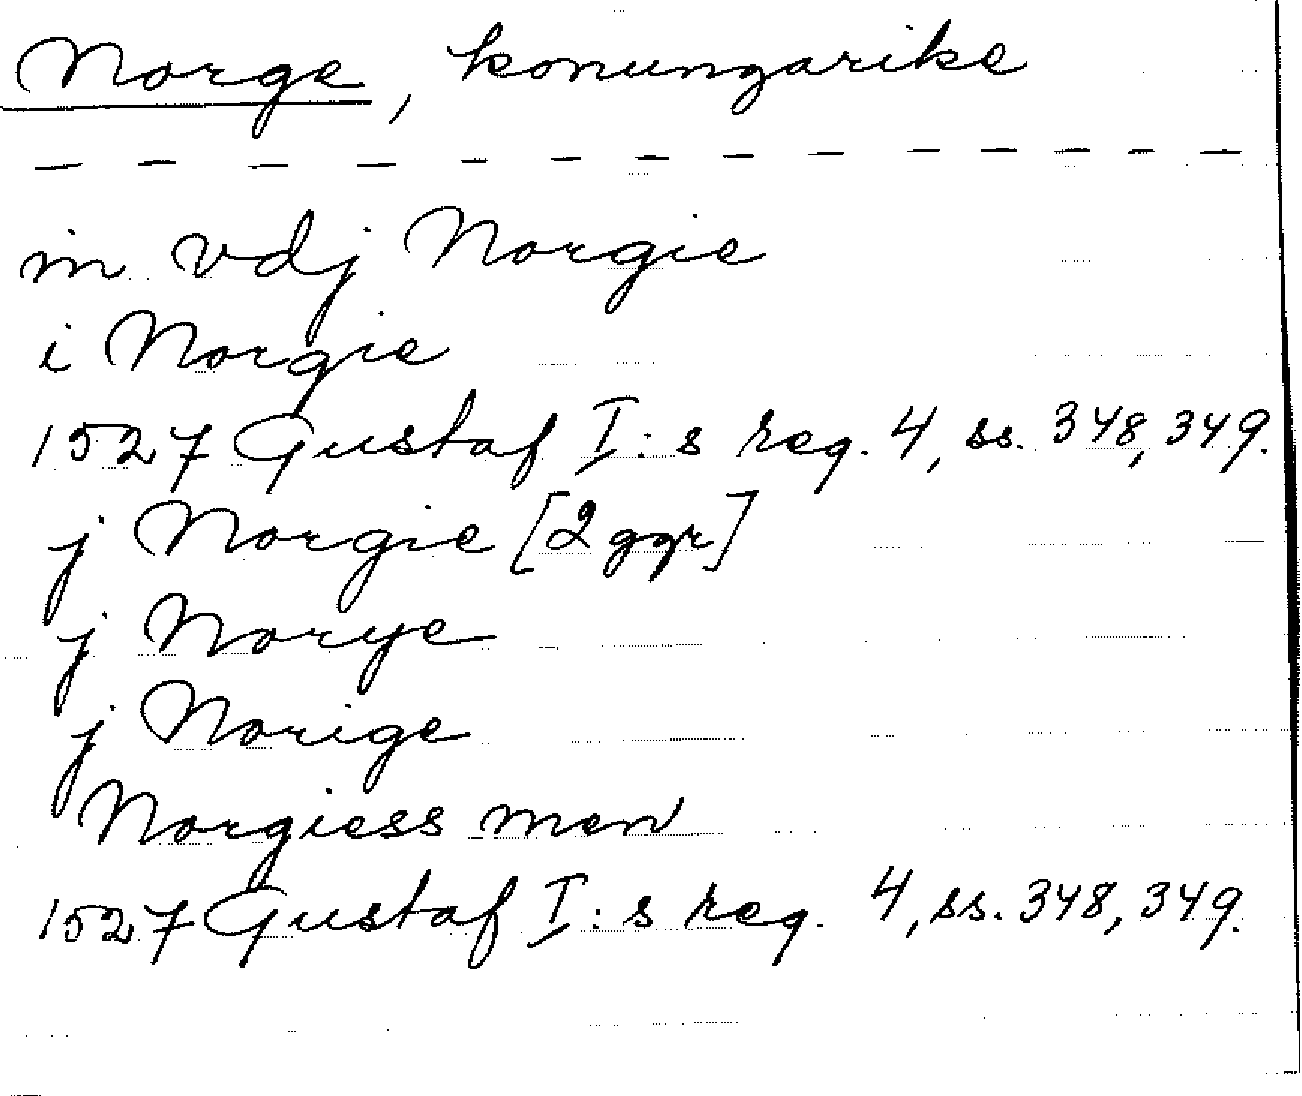 Norge, konungarike
– – – – – – – – – – – – –
in vdj Norgie
i Norgie
1527 Gustaf I:s reg. 4, ss. 348, 349.
j Norgie [2 ggr]
j Norye
j Norige
Norgiess men
1527 Gustaf I:s reg. 4, ss. 348, 349.